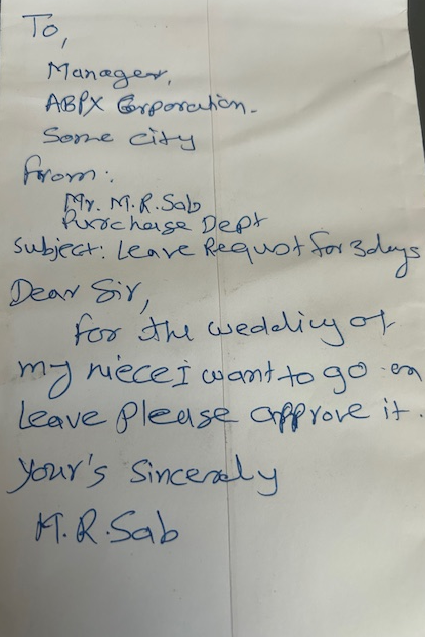 To,
Manager,
ABPX Corporation.
Some city
From:
Mr. M.R.Sab
Purchase Dept
Subject: Leave Requst for 3days
Dear Sir,
for the wedding of
my niece I want to go on
leave please approve it.
Your's Sincerely
M.R.Sab